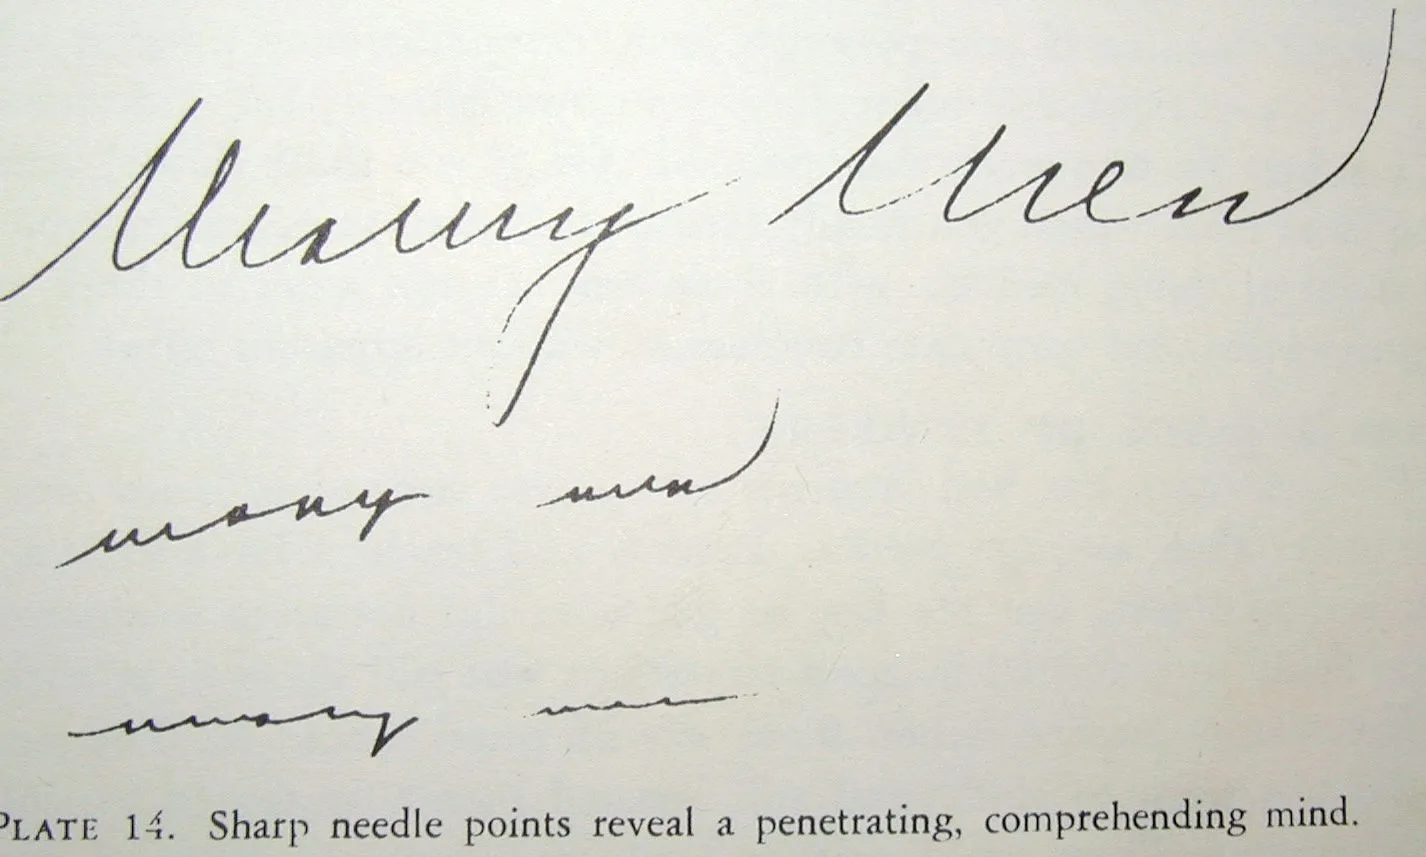 Many Men
many men
many men
PLATE 14. Sharp needle points reveal a penetrating, comprehending mind.